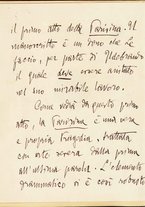 il primo atto della Parisina. Il
manoscritto è un dono che Le
faccio, per tramite di Ildebrando
il quale deve essere aiutato
nel suo mirabile lavoro.
Come vedrà da questo primo
atto, la Parisina è una vera
e propria tragedia, trattata
con arte severa dalla prima
all'ultima parola. L'elemento
drammatico vi è così robusto